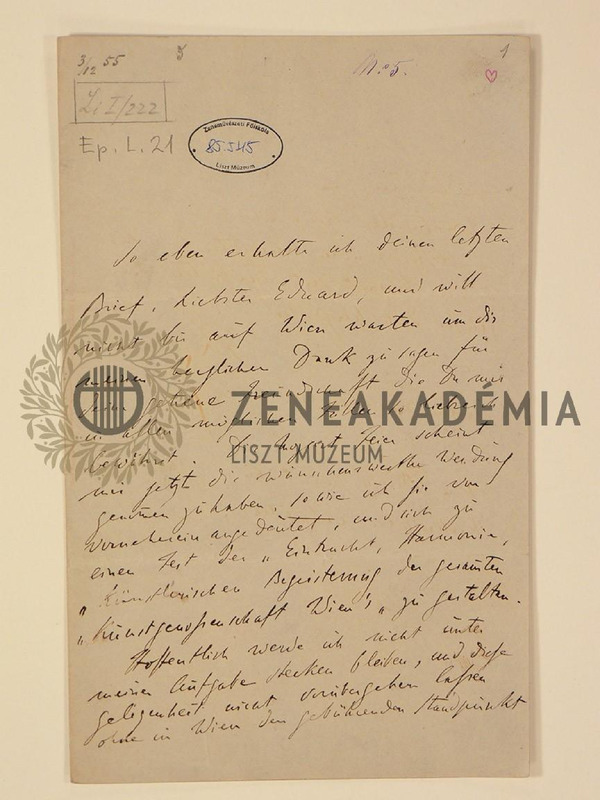 3/12 55
5
No 5.
1
Li I/222
Ep. L. 21
Zeneművészeti Főiskola
85.545
Liszt Múzeum
So eben erhalte ich deinen letzten
Brief, liebster Eduard, und will
nicht bis auf Wien warten um dir
meinen herzlichen Dank zu sagen für
Freundschaft die Du mir
in allen möglichen Fällen so liebreich
bewährst. Die Mozart Feier scheint
mir jetzt die wünschenswerthe Wendung
genomen zu haben, so wie ich sie von
vorneherein angedeutet, und sich zu
einen Fest der „Eintracht, Harmonie,
„Künstlerischen Begeisterung der gesamten
„Kunstgenossenschaft Wien's„ zu gestalten.
Hoffentlich werde ich nicht unter
meiner Aufgabe stecken bleiben, und diese
gelegenheit nicht vorübergehen lassen
ohne in Wien den gebührenden Standpunkt
ZENEAKADÉMIA
LISZT MÚZEUM